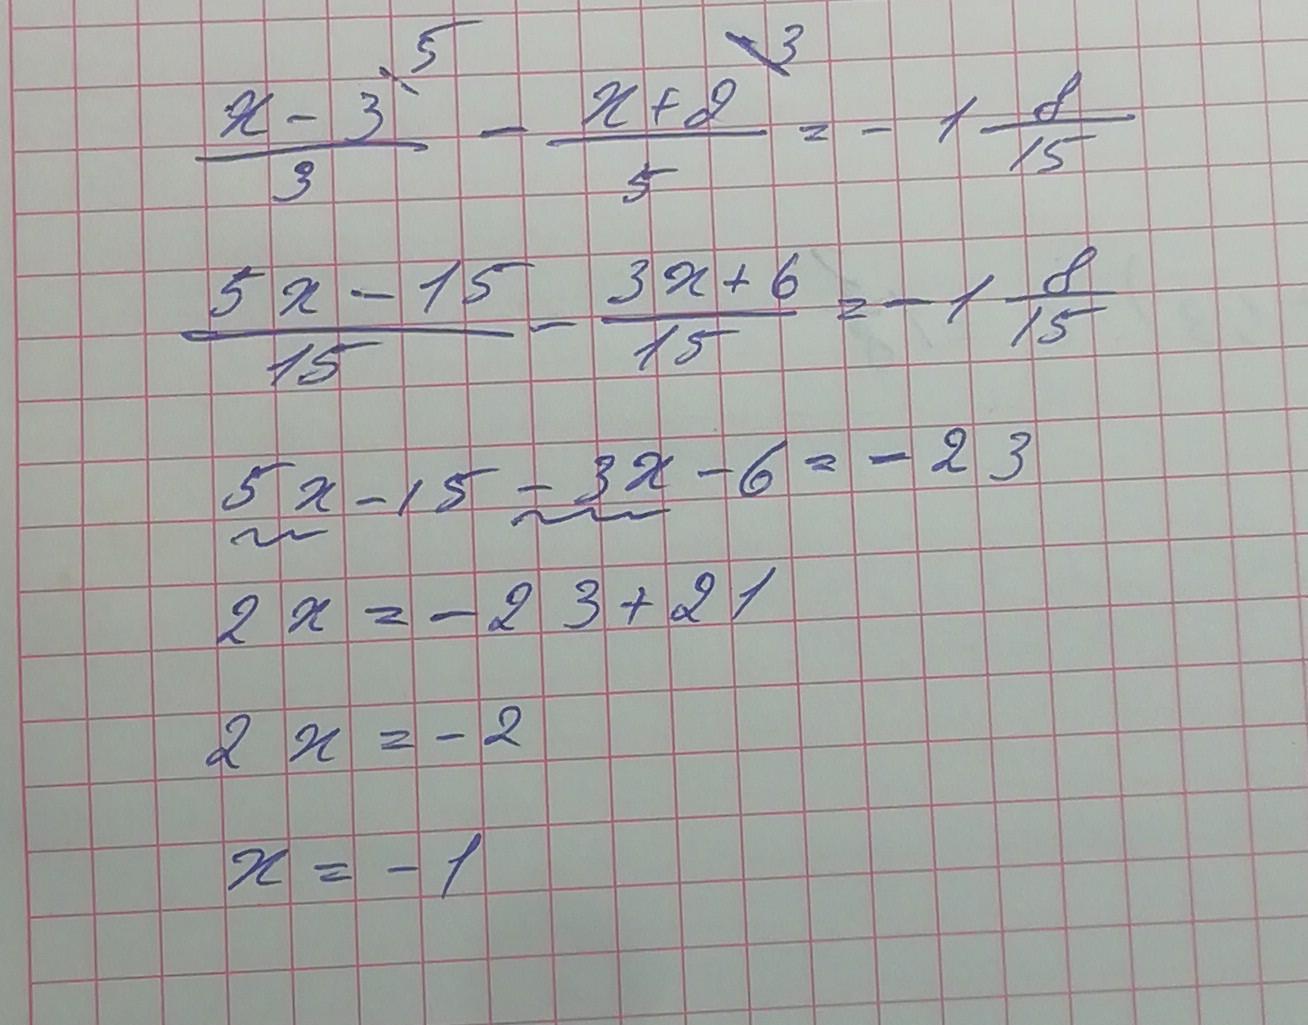 (x - 3)/3 \5 - (x + 2)/5 \3 = - 1 8/15
(5x - 15)/15 - (3x + 6)/15 = - 1 8/15
5x - 15 - 3x - 6 = - 23
2x = - 23 + 21
2x = - 2
x = - 1